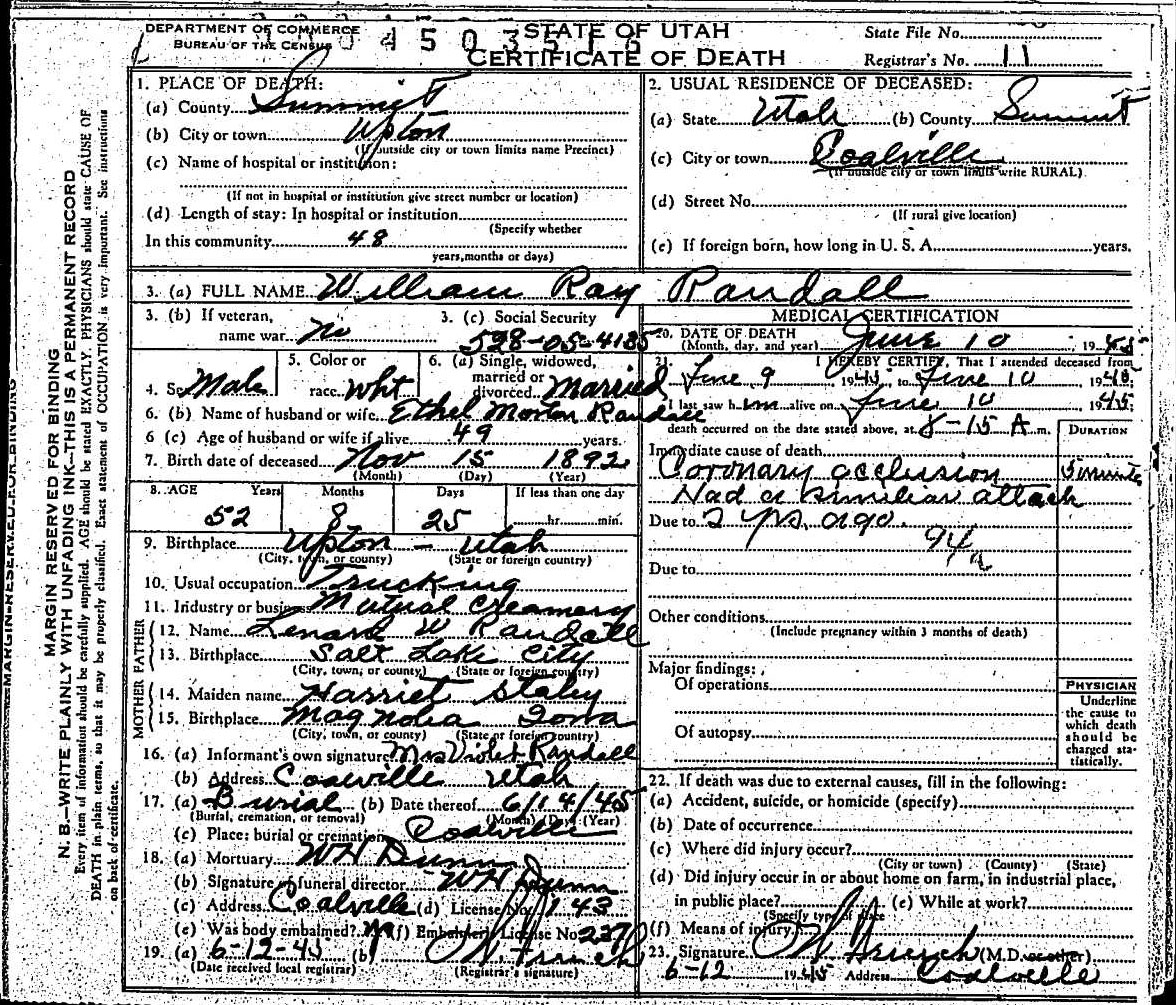 DEPARTMENT OF COMMERCE
BUREAU OF THE CENSUS
4503516
STATE OF UTAH
CERTIFICATE OF DEATH
State File No.
Registrar's No. 11
MARGIN RESERVED FOR BINDING
MARGIN RESERVED FOR BINDING
N. B.—WRITE PLAINLY WITH UNFADING INK—THIS IS A PERMANENT RECORD
Every item of information should be carefully supplied. AGE should be stated EXACTLY. PHYSICIANS should state CAUSE OF
DEATH in plain terms, so that it may be properly classified. Exact statement of OCCUPATION is very important. See instructions
on back of certificate.
1. PLACE OF DEATH:
(a) County Summit
(b) City or town Upton
(If outside city or town limits name Precinct)
(c) Name of hospital or institution:
(If not in hospital or institution give street number or location)
(d) Length of stay: In hospital or institution
(Specify whether
In this community 48
years, months or days)
2. USUAL RESIDENCE OF DECEASED:
(a) State Utah (b) County Summit
(c) City or town Coalville
(If outside city or town limits write RURAL)
(d) Street No.
(If rural give location)
(e) If foreign born, how long in U. S. A. years.
3. (a) FULL NAME William Ray Randall
3. (b) If veteran,
name war No
3. (c) Social Security
528-05-4185
4. Sex Male
5. Color or
race wht
6. (a) Single, widowed,
married or
divorced Married
6. (b) Name of husband or wife Ethel Morton Randall
6 (c) Age of husband or wife if alive 49 years.
7. Birth date of deceased Nov 15 1892
(Month) (Day) (Year)
8. AGE Years Months Days If less than one day
52 8 25 hr. min.
9. Birthplace Upton - Utah
(City, town, or county) (State or foreign country)
10. Usual occupation Trucking
11. Industry or business Mutual Creamery
FATHER
12. Name Lenard W Randall
13. Birthplace Salt Lake City
(City, town, or county) (State or foreign country)
MOTHER
14. Maiden name Harriet Staley
15. Birthplace Magnolia Iowa
(City, town, or county) (State or foreign country)
16. (a) Informant's own signature Mrs Violet Randall
(b) Address Coalville Utah
17. (a) Burial (b) Date thereof 6/14/45
(Burial, cremation, or removal) (Month) (Day) (Year)
(c) Place: burial or cremation Coalville
18. (a) Mortuary WH Dunn
(b) Signature of funeral director WH Dunn
(c) Address Coalville (d) License No. 143
(e) Was body embalmed? (f) Embalmer's License No.
19. (a) 6-12-45 (b)
(Date received local registrar) (Registrar's signature)
MEDICAL CERTIFICATION
20. DATE OF DEATH June 10 1945
(Month, day, and year)
21. I HEREBY CERTIFY, That I attended deceased from
June 9 1945, to June 10 1945;
I last saw him alive on June 10 1945;
death occurred on the date stated above, at 8-15 A m.
DURATION
Immediate cause of death
Coronary occlusion 5 minutes
Had a similar attack
Due to 2 yrs. ago.
94a
Due to
Other conditions
(Include pregnancy within 3 months of death)
Major findings:
Of operations
Of autopsy
PHYSICIAN
Underline
the cause to
which death
should be
charged sta-
tistically.
22. If death was due to external causes, fill in the following:
(a) Accident, suicide, or homicide (specify)
(b) Date of occurrence
(c) Where did injury occur?
(City or town) (County) (State)
(d) Did injury occur in or about home on farm, in industrial place,
in public place? (e) While at work?
(Specify type of place
(f) Means of injury
23. Signature (M.D. or other)
6-12 1945 Address Coalville